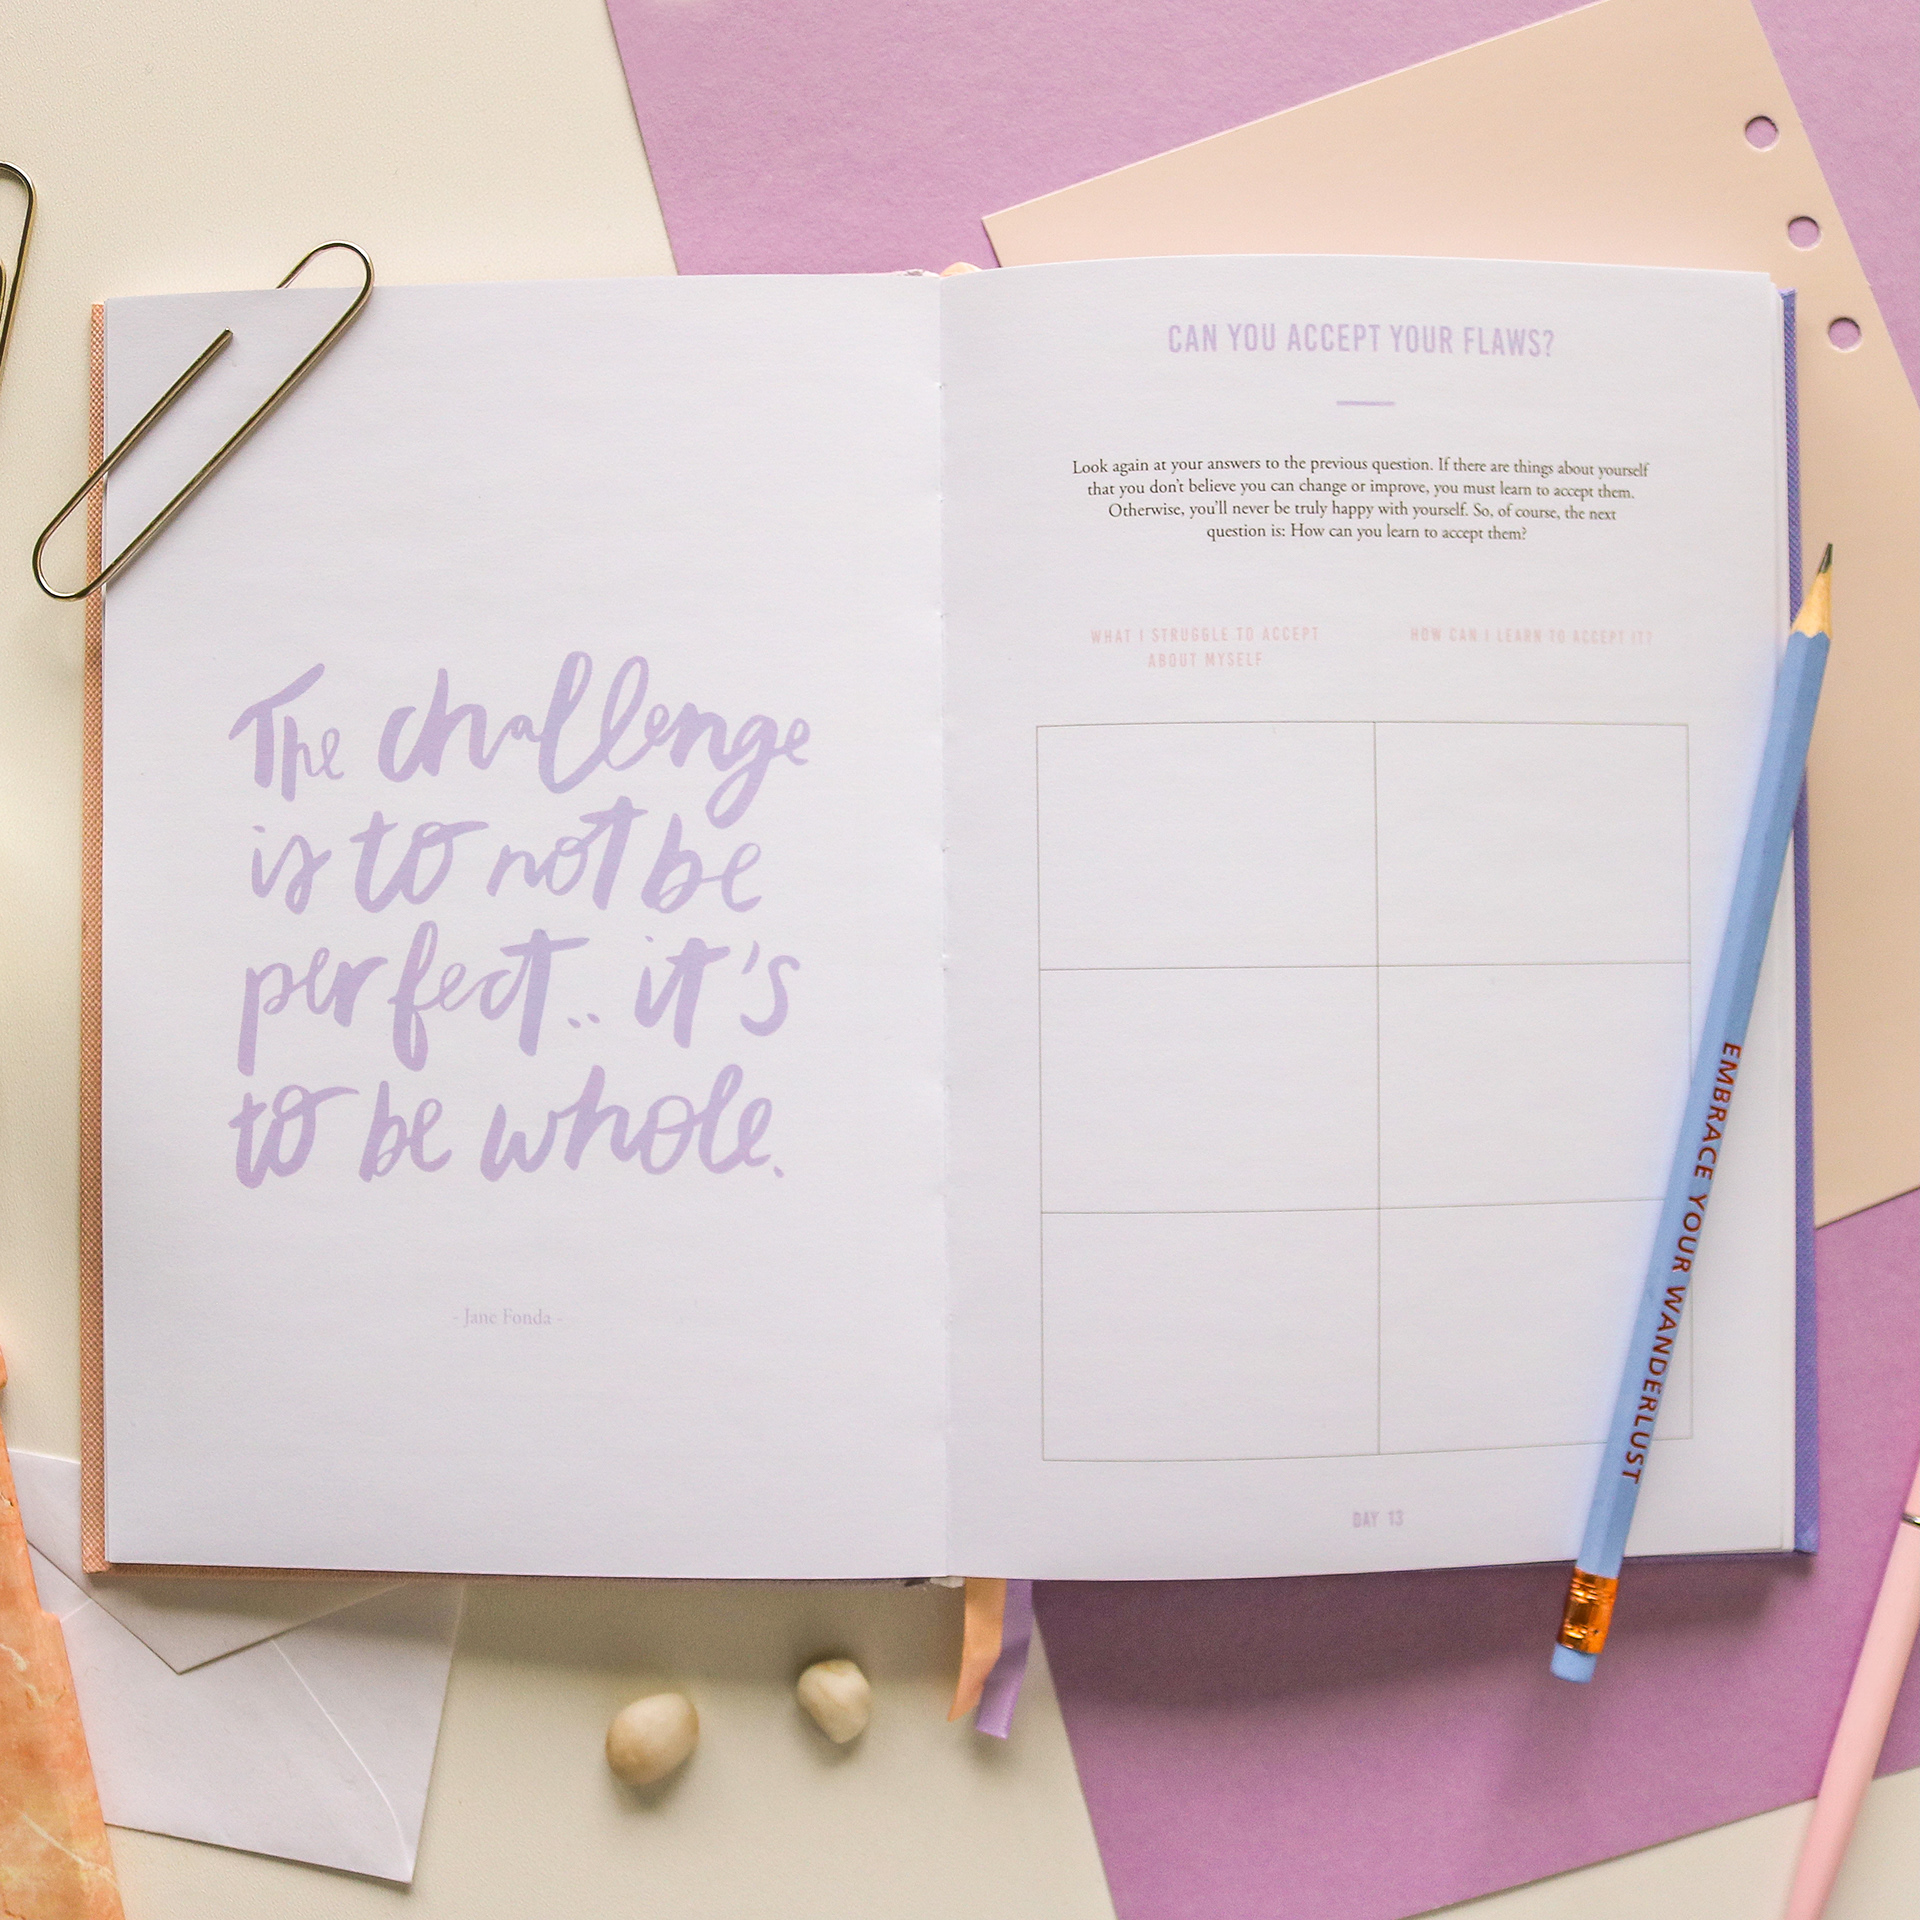 The challenge
is to not be
perfect.. it's
to be whole.
- Jane Fonda -
CAN YOU ACCEPT YOUR FLAWS?
Look again at your answers to the previous question. If there are things about yourself
that you don't believe you can change or improve, you must learn to accept them.
Otherwise, you'll never be truly happy with yourself. So, of course, the next
question is: How can you learn to accept them?
WHAT I STRUGGLE TO ACCEPT
ABOUT MYSELF
HOW CAN I LEARN TO ACCEPT IT?
DAY 13
EMBRACE YOUR WANDERLUST